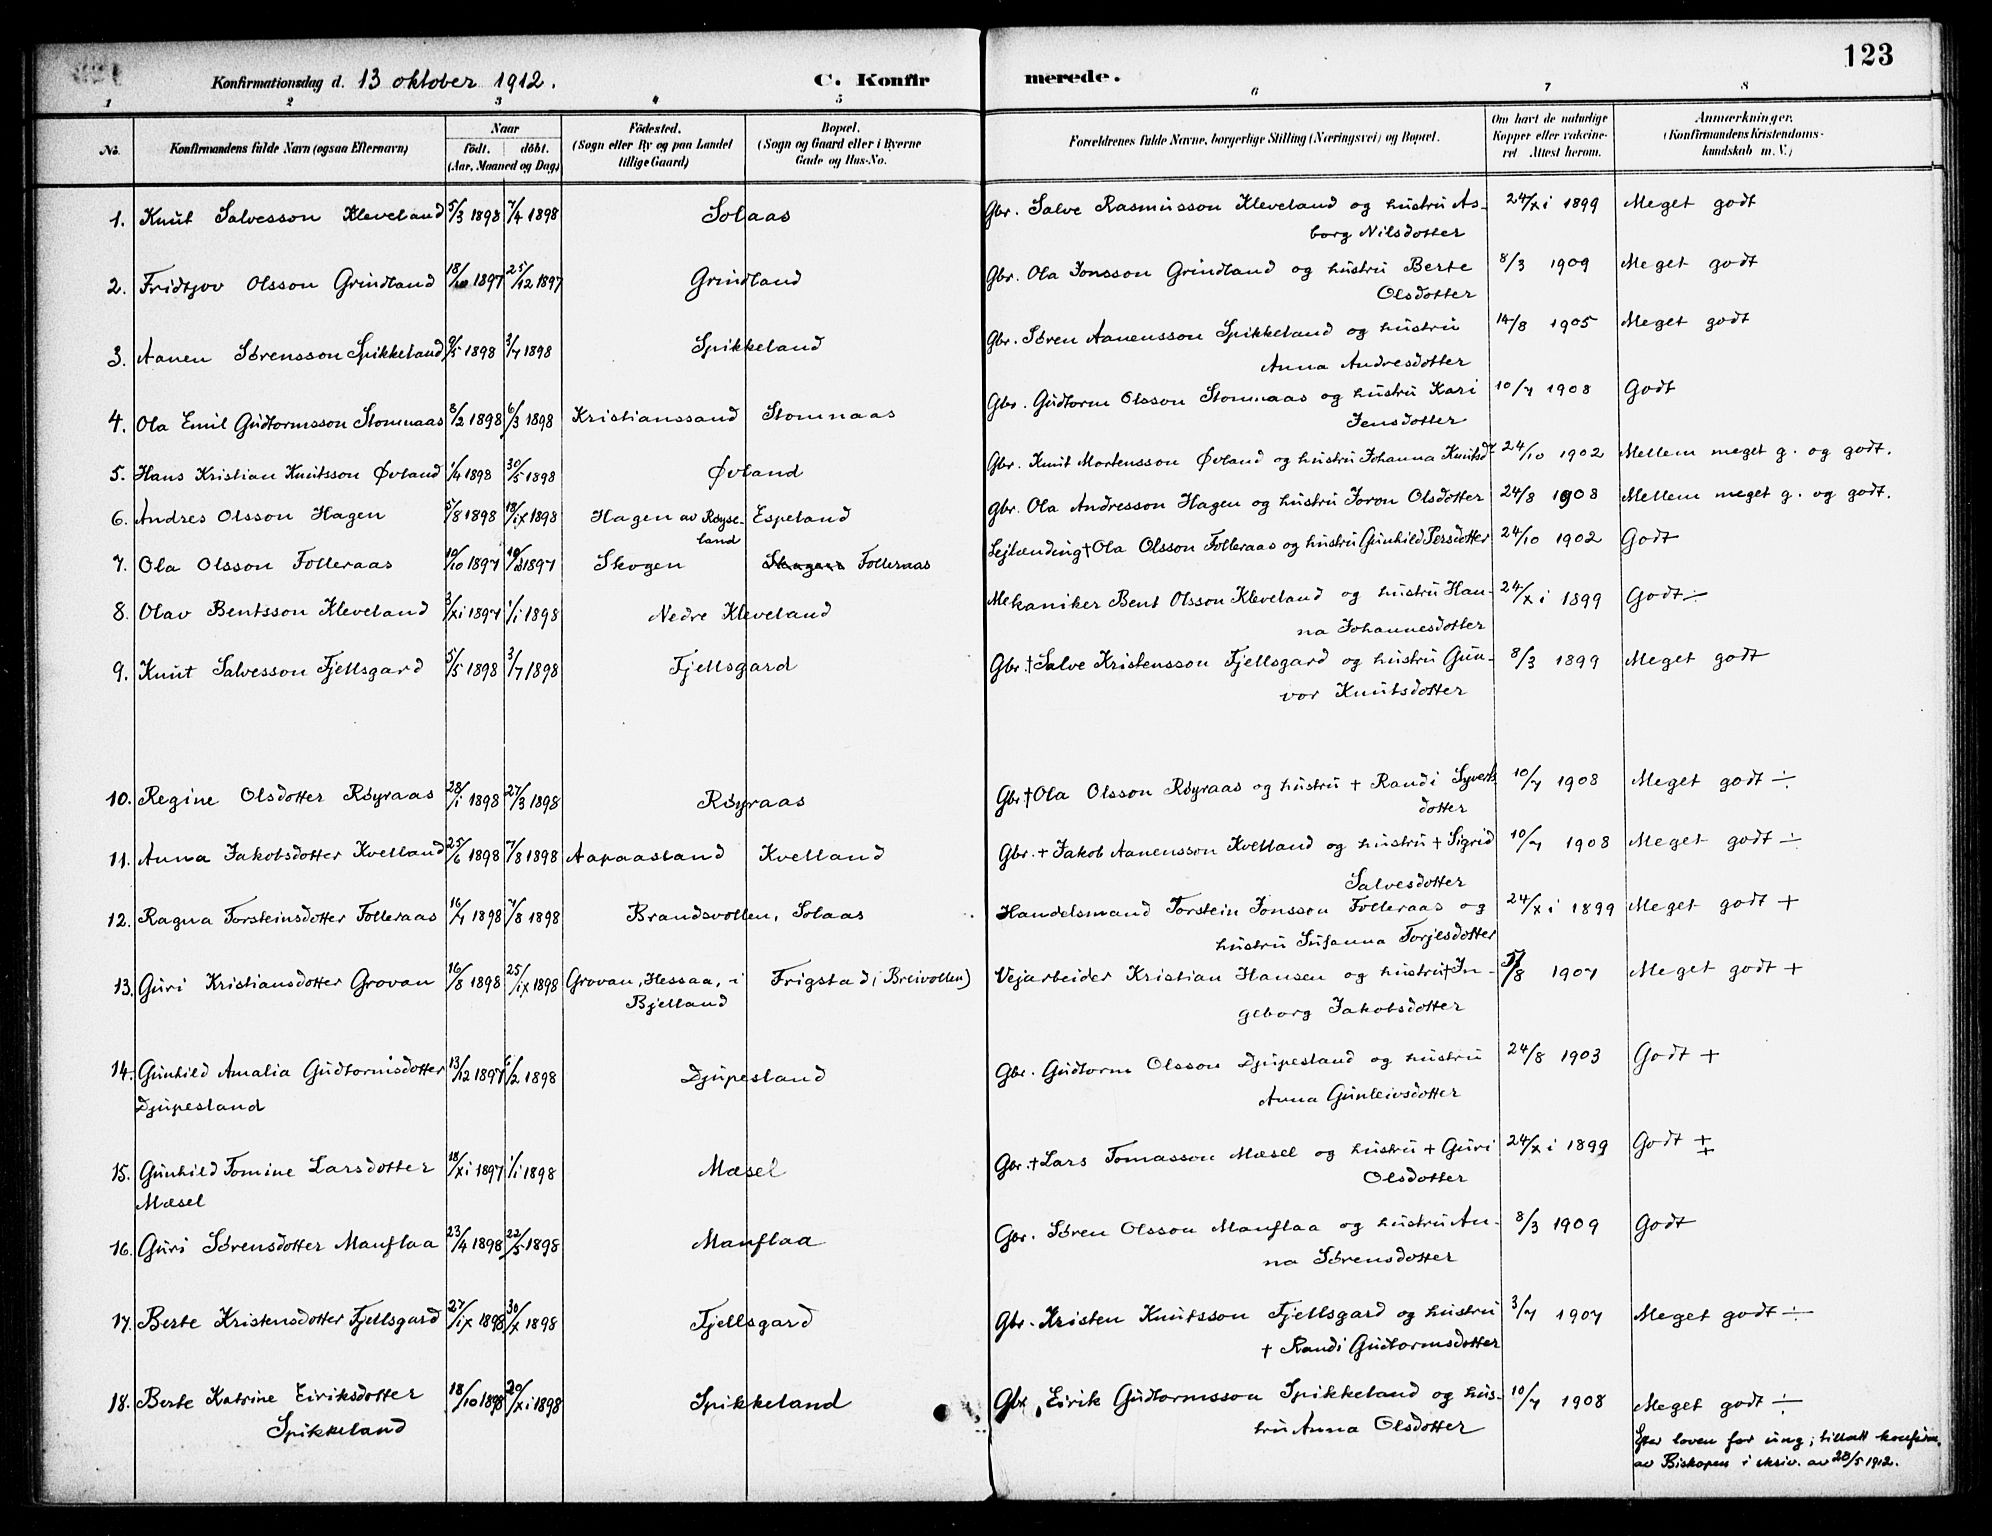 123
Konfirmationsdag d. 13 oktober 1912.
C. Konfirmerede.
1 2 3 4 5 6 7 8
No.
Konfirmandens fulde Navn (ogsaa Efternavn)
Naar
födt. döbt.
(Aar, Maaned og Dag)
Födested.
(Sogn eller By og paa Landet
tillige Gaard)
Bopæl.
(Sogn og Gaard eller i Byerne
Gade og Hus-No.
Forældrenes fulde Navne, borgerlige Stilling (Næringsvei) og Bopæl.
Om havt de naturlige
Kopper eller vakcine-
ret Attest herom.
Anmærkninger.
(Konfirmandens Kristendoms-
kundskab m. V.)
1. Knut Salvesson Kleveland 5/3 1898 7/4 1898 Solaas Gbr. Salve Rasmusson Kleveland og hustru As- 24/xi 1899 Meget godt
borg Nilsdotter
2. Fridtjov Olsson Grindland 18/10 1897 25/12 1897 Grindland Gbr. Ola Jonsson Grindland og hustru Berte 8/3 1909 Meget godt
Olsdotter
3. Aanen Sørensson Spikkeland 9/5 1898 3/7 1898 Spikkeland Gbr. Søren Aanensson Spikkeland og hustru 14/8 1905 Meget godt
Anna Andresdotter
4. Ola Emil Gudtormsson Stomnaas 8/2 1898 6/3 1898 Kristianssand Stomnaas Gbr. Gudtorm Olsson Stomnaas og hustru Kari 10/7 1908 Godt
Jensdotter
5. Hans Kristian Knutsson Øvland 1/4 1898 30/5 1898 Øvland Gbr. Knut Mortensson Øvland og hustru Johanna Knutsd. 24/10 1902 Mellem meget g. og godt.
6. Andres Olsson Hagen 5/8 1898 18/ix 1898 Hagen av Røyse- Espeland Gbr. Ola Andresson Hagen og hustru Joron Olsdotter 24/8 1908 Mellem meget g. og godt.
land
7. Ola Olsson Folleraas 10/10 1897 1897 Skogen Folleraas Lejlænding † Ola Olsson Folleraas og hustru Gunhild Persdotter 24/10 1902 Godt
8. Olav Bentsson Kleveland 3/xi 1897 1/i 1898 Nedre Kleveland Mekaniker Bent Olsson Kleveland og hustru Han- 24/xi 1899 Godt ÷
na Johannesdotter
9. Knut Salvesson Fjellsgard 5/5 1898 3/7 1898 Fjellsgard Gbr. † Salve Kristensson Fjellsgard og hustru Gun- 8/3 1899 Meget godt
vor Knutsdotter
10. Regine Olsdotter Røyraas 28/i 1898 27/3 1898 Røyraas Gbr. † Ola Olsson Røyraas og hustru † Randi Syverts- 10/7 1908 Meget godt ÷
dotter
11. Anna Jakobsdotter Kvelland 25/6 1898 7/8 1898 Aapaasland Kvelland Gbr. † Jakob Aanensson Kvelland og hustru † Sigrid 10/7 1908 Meget godt ÷
Salvesdotter
12. Ragna Torsteinsdotter Folleraas 16/7 1898 7/8 1898 Brandsvollen, Solaas Handelsmand Torstein Jonsson Folleraas og 24/xi 1899 Meget godt +
hustru Susanna Torjesdotter
13. Guri Kristiansdotter Grovan 16/8 1898 25/ix 1898 Grovan, Hessaa, i Frigstad, Breivollen) Vejarbeider Kristian Hansen og hustru † In- /8 1907 Meget godt +
Bjelland geborg Jakobsdotter
14. Gunhild Amalia Gudtormsdotter 13/12 1897 6/2 1898 Djupesland Gbr. Gudtorm Olsson Djupesland og hustru 24/8 1903 Godt +
Djupesland Anna Gunleivsdotter
15. Gunhild Tomine Larsdotter 18/xi 1897 1/i 1898 Mæsel Gbr. † Lars Tomasson Mæsel og hustru † Guri 24/xi 1899 Godt +
Mæsel Olsdotter
16. Guri Sørensdotter Manflaa 23/4 1898 22/5 1898 Manflaa Gbr. Søren Olsson Manflaa og hustru An- 8/3 1909 Godt
na Sørensdotter
17. Berte Kristensdotter Fjellsgard 27/ix 1898 30/x 1898 Fjellsgard Gbr. Kristen Knutsson Fjellsgard og hustru 3/7 1907 Meget godt ÷
† Randi Gudtormsdotter
18. Berte Katrine Eiriksdotter 18/10 1898 20/xi 1898 Spikkeland Gbr. Eirik Gudtormsson Spikkeland og hus- 10/7 1908 Meget godt ÷
Spikkeland tru Anna Olsdotter
Efter loven for ung; tillatt konfirm.
av Biskopen i skriv. av 28/5 1912.